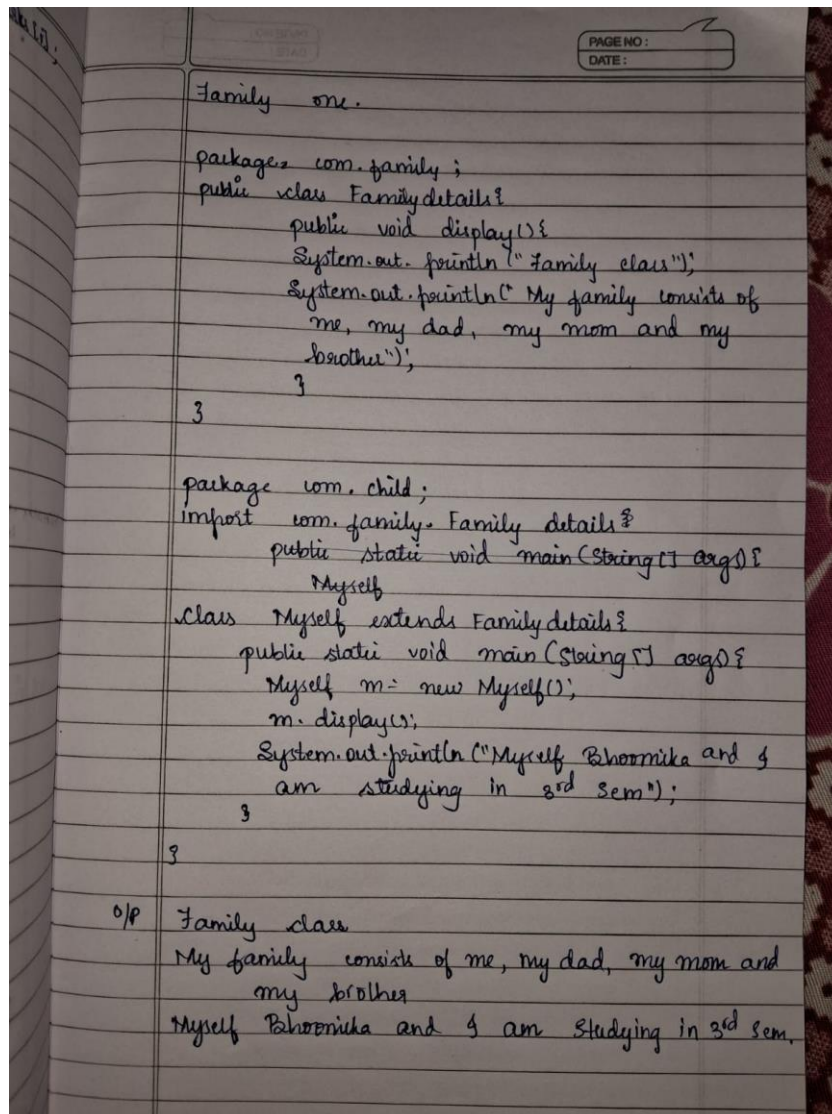 PAGE NO :
DATE :
Family one.
package com.family ;
public class Familydetails{
public void display(){
System.out.println("Family class");
System.out.println(" My family consists of
me, my dad, my mom and my
brother");
}
}
package com.child ;
import com.family.Family details{
public static void main(String[] args){
Myself
class Myself extends Familydetails{
public static void main(String[] args){
Myself m = new Myself();
m.display();
System.out.println("Myself Bhoomika and I
am studying in 3rd Sem");
}
}
O/P Family class
My family consists of me, my dad, my mom and
my brother
Myself Bhoomika and I am Studying in 3rd Sem.